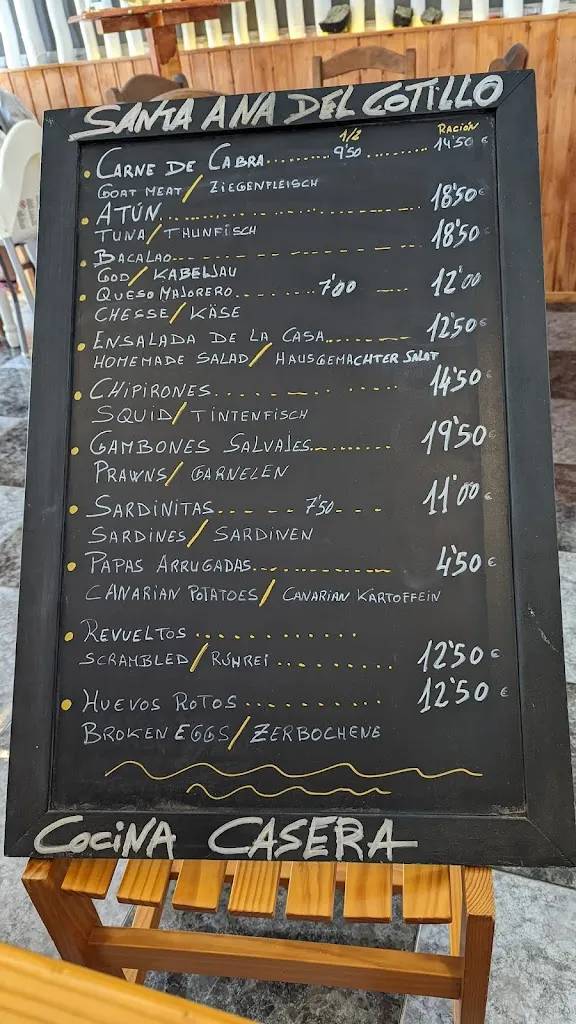 SANTA ANA DEL COTILLO
1/2 RACIÓN
CARNE DE CABRA........ 9'50 ........ 14'50 €
GOAT MEAT / ZIEGENFLEISCH
ATÚN........ 18'50 €
TUNA / THUNFISCH
BACALAO........ 18'50 €
GOD / KABELJAU
QUESO MAJORERO........ 7'00 ........ 12'00
CHESSE / KÄSE
ENSALADA DE LA CASA........ 12'50 €
HOMEMADE SALAD / HAUSGEMACHTER SALAT
CHIPIRONES........ 14'50 €
SQUID / TINTENFISCH
GAMBONES SALVAJES........ 19'50 €
PRAWNS / GARNELEN
SARDINITAS........ 7'50 ........ 11'00 €
SARDINES / SARDINEN
PAPAS ARRUGADAS........ 4'50 €
CANARIAN POTATOES / CANARIAN KARTOFFEIN
REVUELTOS ........
SCRAMBLED / RÜHREI ........ 12'50 €
HUEVOS ROTOS ........ 12'50 €
BROKEN EGGS / ZERBOCHENE
COCINA CASERA